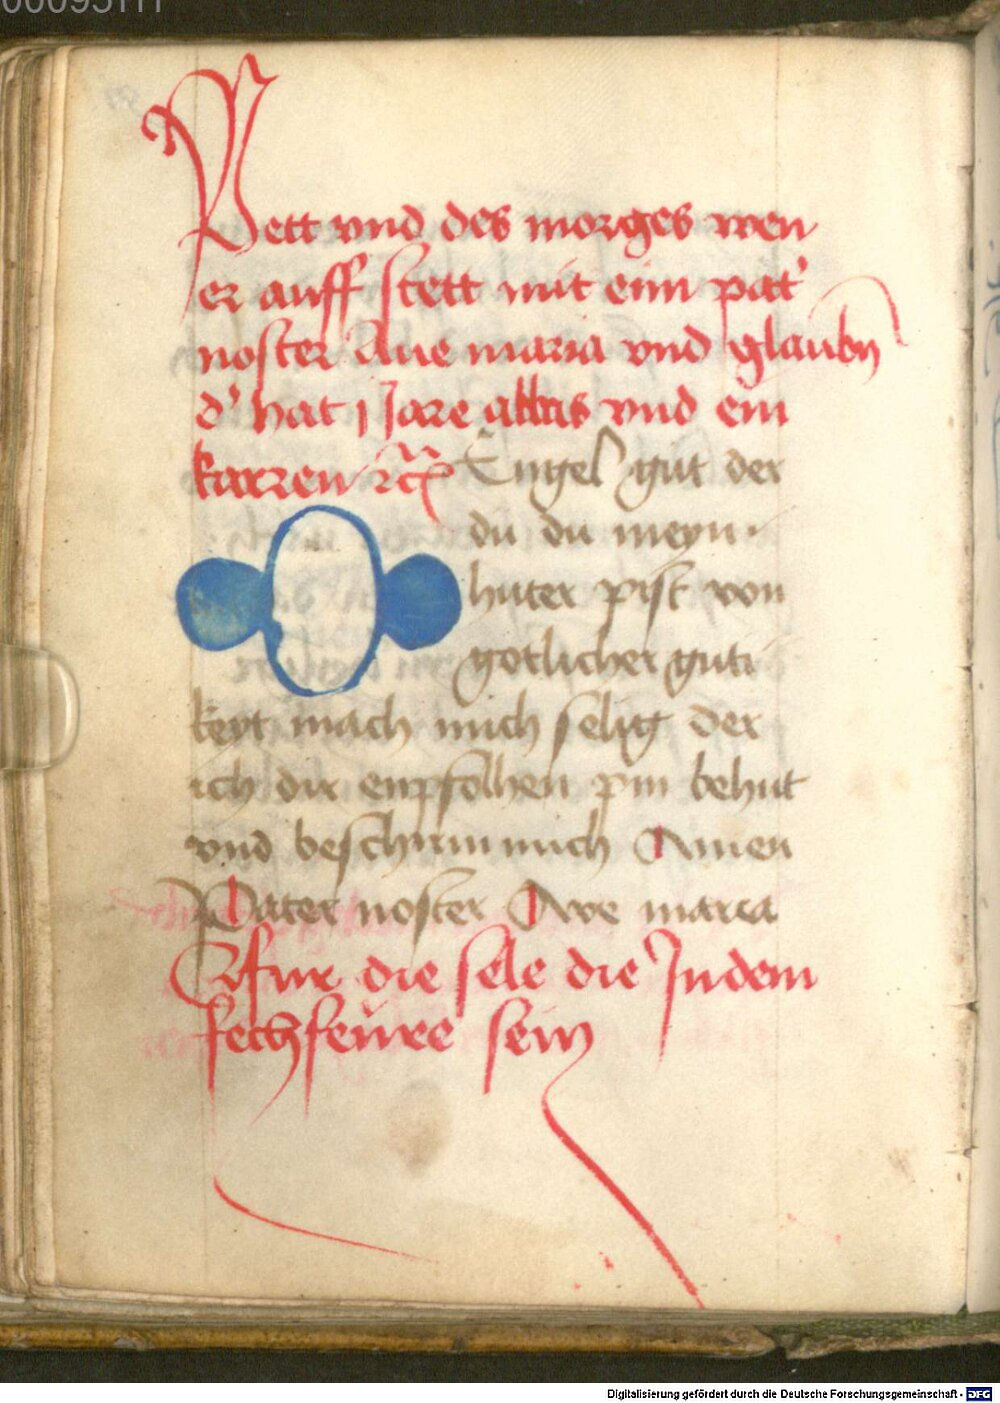 00095111
Pett vnd des morges wen
er auff stett mit eim pat'
noster Aue maria vnd glaubn
d' hat 1 Jare ablas vnd ein
karren rc͞
O Engel gut der
du du meyn
huter pist von
gotlicher guti
keyt mach mich selig der
ich dir enpfolhen pin behut
vnd beschirm mich Amen
Pater noster Ave maria
fur die sele die Jn dem
fechfeure sein
Digitalisierung gefördert durch die Deutsche Forschungsgemeinschaft - DFG